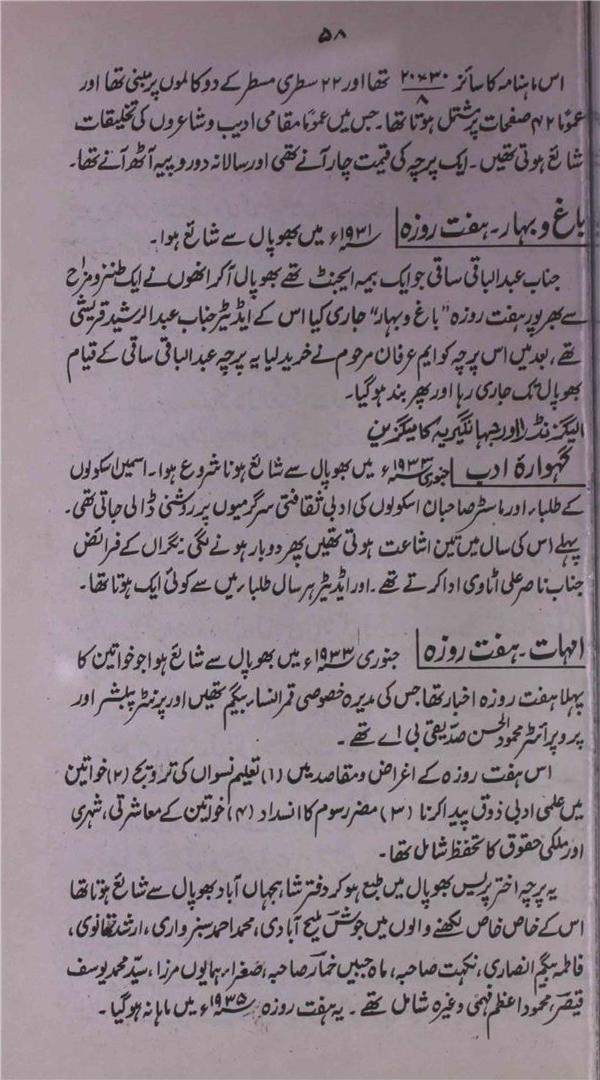 ۵۸
اس ماہنامہ کا سائز ۲۰×۳۰/۸ تھا اور ۲۲ سطری مسطر کے دو کالموں پر مبنی تھا اور
عموماً ۴۲ صفحات پر مشتمل ہوتا تھا۔ جس میں عموماً مقامی ادیب و شاعروں کی تخلیقات
شائع ہوتی تھیں۔ ایک پرچہ کی قیمت چار آنے تھی اور سالانہ دو روپیہ آٹھ آنے تھا۔
باغ و بہار۔ ہفت روزہ ۱۹۳۱ء میں بھوپال سے شائع ہوا۔
جناب عبدالباقی ساقی جو ایک بیمہ ایجنٹ تھے بھوپال آکر انھوں نے ایک طنز و مزاح
سے بھرپور ہفت روزہ "باغ و بہار" جاری کیا اس کے ایڈیٹر جناب عبدالرشید قریشی
تھے، بعد میں اس پرچہ کو ایم عرفان مرحوم نے خرید لیا یہ پرچہ عبدالباقی ساقی کے قیام
بھوپال تک جاری رہا اور پھر بند ہوگیا۔
الیگزنڈرا اور جہانگیریہ کا میگزین
گہوارۂ ادب جنوری ۱۹۳۳ء میں بھوپال سے شائع ہونا شروع ہوا۔ اسمیں اسکولوں
کے طلباء اور ماسٹر صاحبان اسکولوں کی ادبی ثقافتی سرگرمیوں پر روشنی ڈالی جاتی تھی۔
پہلے اس کی سال میں تین اشاعت ہوتی تھیں پھر دوبار ہونے لگی نگراں کے فرائض
جناب ناصر علی اٹاوی ادا کرتے تھے۔ اور ایڈیٹر ہر سال طلباء میں سے کوئی ایک ہوتا تھا۔
امہات۔ ہفت روزہ جنوری ۱۹۳۳ء میں بھوپال سے شائع ہوا جو خواتین کا
پہلا ہفت روزہ اخبار تھا جس کی مدیرہ خصوصی قمر النساء بیگم تھیں اور پرنٹر پبلشر اور
پروپرائٹر محمود الحسن صدیقی بی اے تھے۔
اس ہفت روزہ کے اغراض و مقاصد میں (۱) تعلیم نسواں کی ترویج (۲) خواتین
میں علمی ادبی ذوق پیدا کرنا (۳) مضر رسوم کا انسداد (۴) خواتین کے معاشرتی، شہری
اور ملکی حقوق کا تحفظ شامل تھا۔
یہ پرچہ اختر پریس بھوپال میں طبع ہو کر دفتر شاہجہاں آباد بھوپال سے شائع ہوتا تھا
اس کے خاص خاص لکھنے والوں میں جوش ملیح آبادی، محمد احمد سبزواری، ارشد تھانوی،
فاطمہ بیگم انصاری، نکہت صاحبہ، ماہ جبیں خمار صاحبہ، صغراء ہمایوں مرزا، سید محمد یوسف
قیصر، محمود اعظم فہمی وغیرہ شامل تھے۔ یہ ہفت روزہ ۱۹۳۵ء میں ماہانہ ہوگیا۔